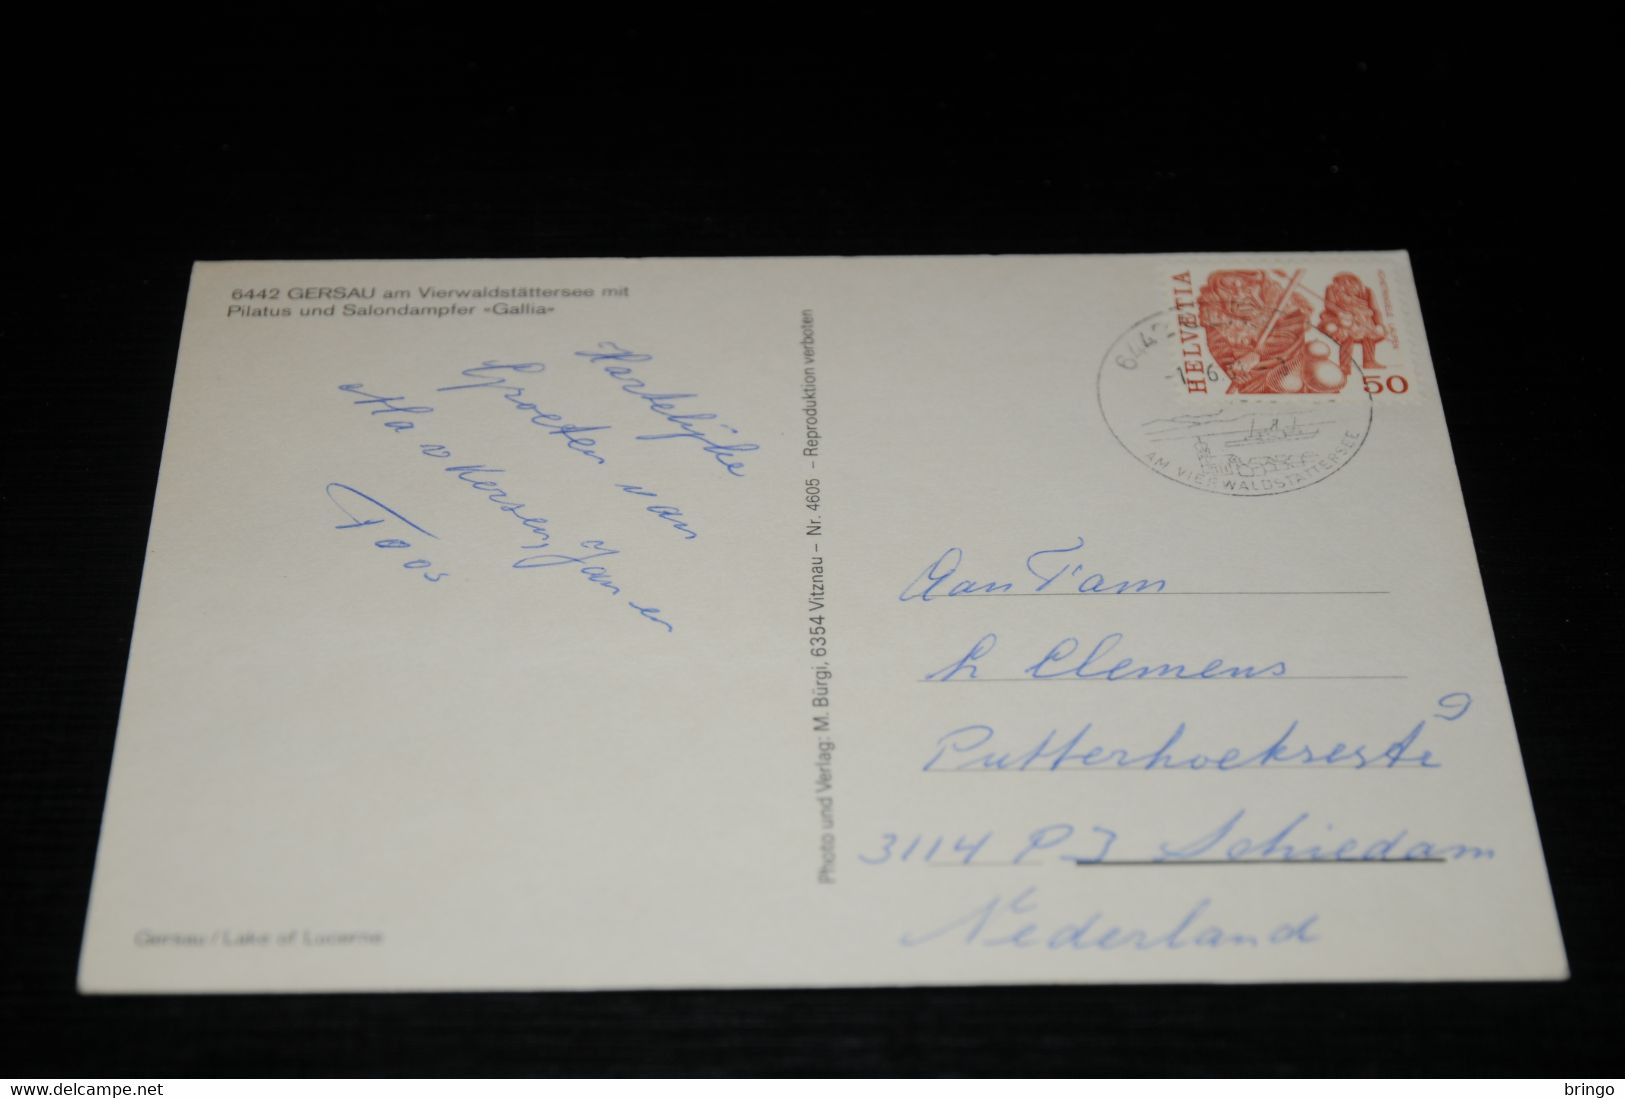 6442 GERSAU am Vierwaldstättersee mit
Pilatus und Salondampfer «Gallia»
Hartelijke
Groeten van
Ma v Kersen, Jan en
Toos
Gersau / Lake of Lucerne
Photo und Verlag: M. Bürgi, 6354 Vitznau – Nr. 4605 – Reproduktion verboten
HELVETIA
50
6442
AM VIERWALDSTÄTTERSEE
Aan Fam
h Clemens
Putterhoeksestr 9
3114 P J Schiedam
Nederland
www.delcampe.net
bringo